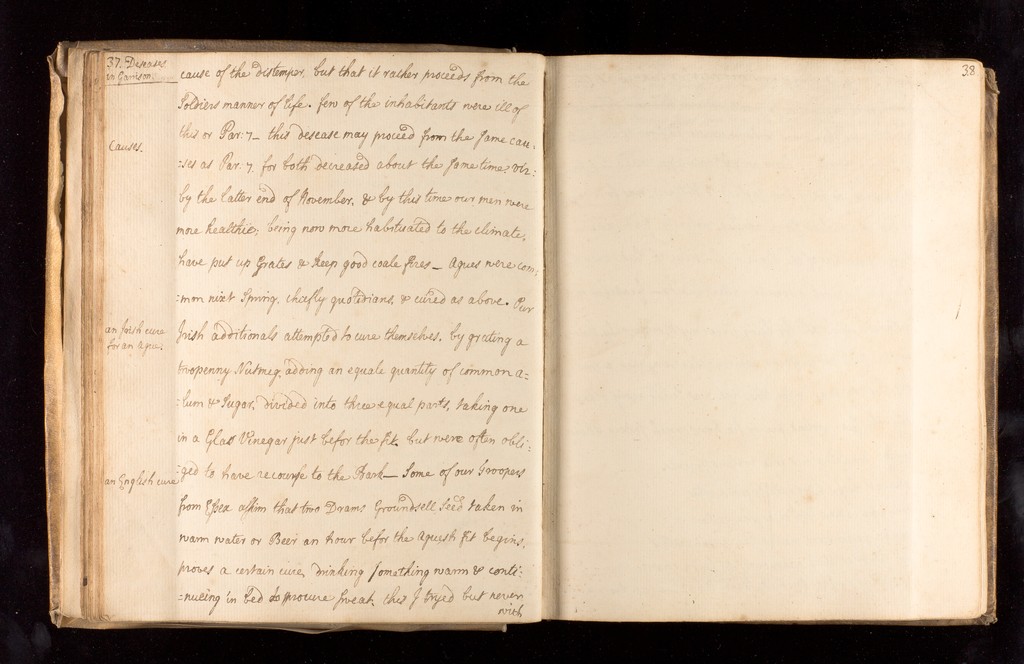 37. Deseases
in Garrison.
cause of the distemper, but that it rather proceeds from the
Soldiers manner of life. few of the inhabitants were ill of
this or Par: 7 _ this desease may proceed from the same cau-
Causes.
:ses as Par. 7. for both decreased about the same time: viz:
by the latter end of November, & by this time our men were
more healthie; being now more habituated to the climate,
have put up Grates & keep good coale fires _ Agues were com:
:mon next Spring, cheifly quotidians, & cured as above. Our
an Irish cure
for an Ague.
Irish additionals attempted to cure themselves, by grating a
twopenny Nutmeg, adding an equale quantity of common A=
:lum & Sugar, divided into three equal parts, taking one
in a Glass Vinegar just befor the fit. but were often obli:
an English cure
:ged to have recourse to the Bark _ Some of our Troopers
from Essex affirm that two Drams Groundsell Seed taken in
warm water or Beer an hour befor the Aguish fit begins,
proves a certain cure, drinking something warm & conti:
:nueing in bed to procure sweat, this I tryed but never
with
38